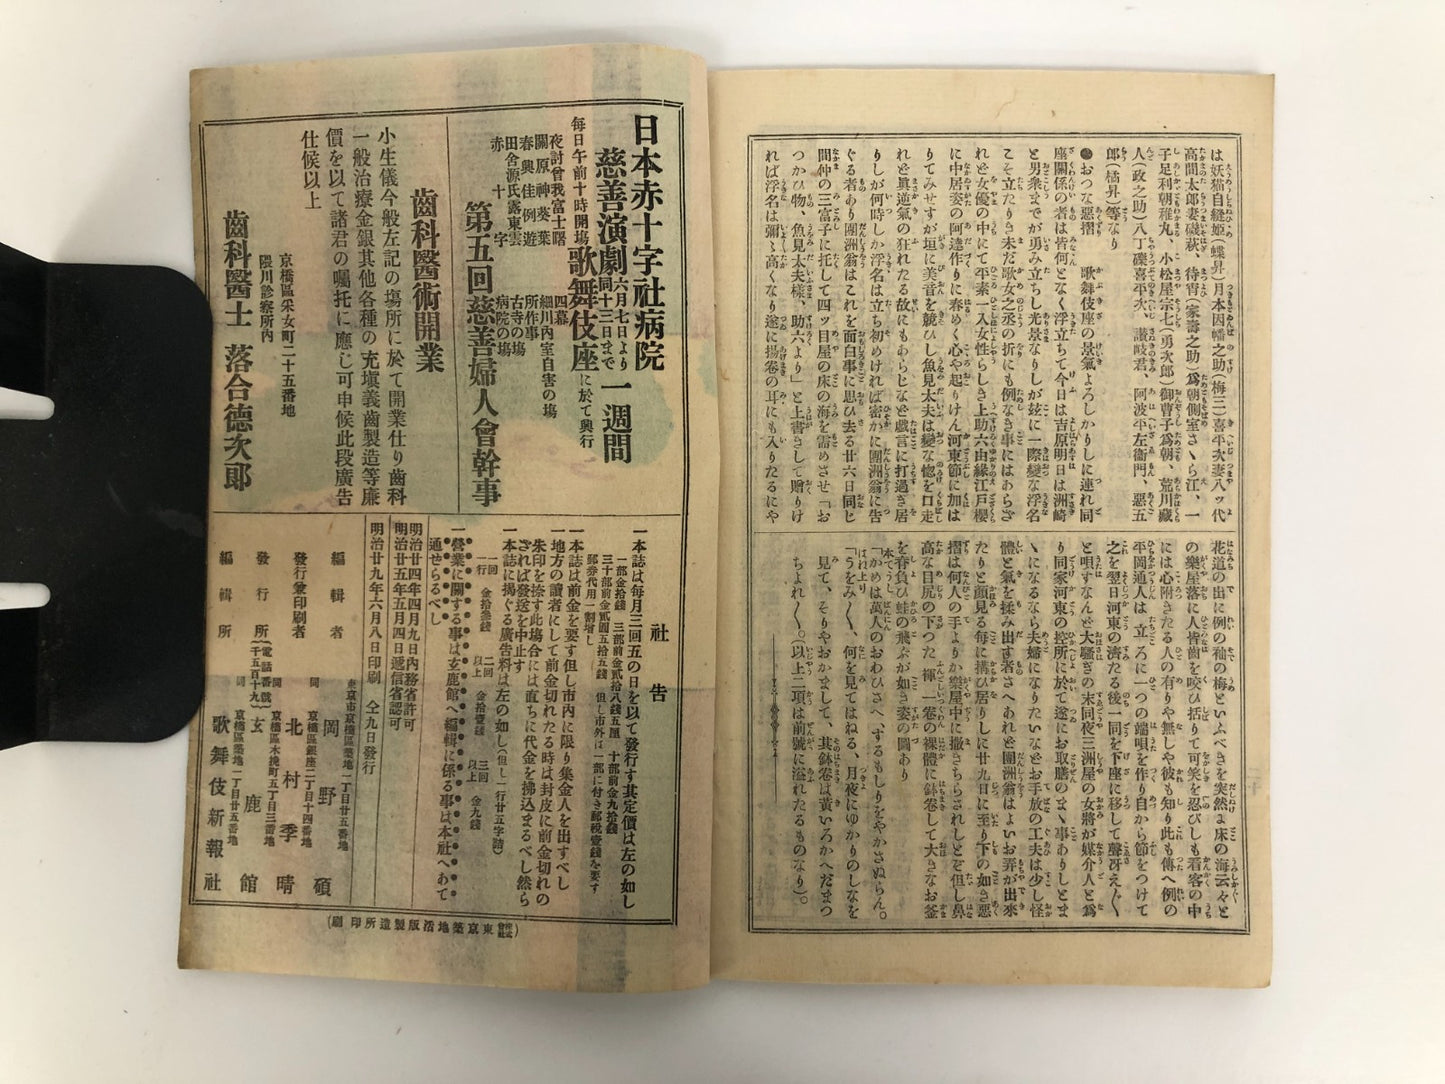 は妖猫自縫姫(蝶昇)月本因幡之助(梅三)喜平次妻八ッ代
高間太郎妻磯萩、待宵(家壽之助)爲朝側室さゝら江、一
子足利朝稚丸、小松屋宗七(勇次郎)御曹子爲朝、荒川藏
人(政之助)八丁礫喜平次、讃岐君、阿波平左衞門、惡五
郎(橘昇)等なり
●おつな惡摺 歌舞伎座の景氣よろしかりしに連れ同
座關係の者は皆何となく浮立ちて今日は吉原明日は洲崎
と男衆までが勇み立ちし光景なりしが玆に一際變な浮名
こそ立たりき未だ歌女之丞の折にも例なき事にはあらざ
れど女優の中にて平素一入女性らしき上助六由緣江戸櫻
に中居姿の阿達作りに春めく心や起りけん河東節に加は
りてみせすが垣に美音を競ひし魚見太夫は變な惚を口走
れど眞逆氣の狂れたる故にもあらじなど戲言に打過ぎ居
りしが何時しか浮名は立ち初めければ密かに團洲翁に告
ぐる者あり團洲翁はこれを面白事に思ひ去る廿六日同じ
間仲の三富子に托して四ッ目屋の床の海を需めさせ「お
つかひ物、魚見太夫樣、助六より」と上書きして贈りけ
れば浮名は彌〻高くなり遂に揚卷の耳にも入りたるにや
花道の出に例の袖の梅といふべきを突然な床の海云々と
の樂屋落に人皆齒を咬ひ括りて可笑を忍びしも看客の中
には心附きたる人の有りや無しや彼も知り此も傳へ例の
平岡通人は立ろに一つの端唄を作り自から節をつけて
之を翌日河東の濟たる後一同を下座に移して聲冴えぐ〳〵
と唄すなんど大騷ぎの末同夜三洲屋の女將が媒介人と爲
り同家河東の控所に於て遂にお取膳のまゝ事ありしとま
ゝになるなら夫婦になりたいなどお手放の工夫は少し怪
體と氣を揉み出す者さへあれど團洲翁はよいお弄が出來
たりと顏見る毎に搆ひ居りしに廿九日に至り下の如き惡
摺は何人の手よりか樂屋中に撒きちらされしとぞ但し鼻
高な目尻の下つた褌一卷の裸體に鉢卷して大きなお釜
を脊負ひ蛙の飛ぶが如き姿の圖あり
本てうし
「かめは萬人のおわひさへ、するもしりをやかさぬらん。
はれ上り
「うをみ〳〵、何を見てはねる、月夜にゆかりのしなを
見て、そりやおかまして、其鉢卷は黄いろかへだまつ
ちよれ〳〵。(以上二項は前號に溢れたるものなり)。
日本赤十字社病院
慈善演劇六月七日より同十三日まで一週間
毎日午前十時開場歌舞伎座に於て興行
夜討曾我富士曙 四幕
關原神葵葉 細川内室自害の塲
春興佳例遊 所作事
田舍源氏露東雲 古寺の塲
赤十字 病院の塲
第五回慈善婦人會幹事
齒科醫術開業
小生儀今般左記の塲所に於て開業仕り齒科
一般治療金銀其他各種の充塡義齒製造等廉
價を以て諸君の囑托に應じ可申候此段廣告
仕候以上
京橋區采女町二十五番地
隈川診察所内
齒科醫士 落合德次郎
社告
一本誌は毎月三回五の日を以て發行す其定價は左の如し
一部金拾錢 三部前金貳拾八錢五厘 十部前金九拾錢
三十部前金貳圓五拾五錢 但し市外は一部に付き郵税壹錢を要す
郵券代用一割增し
一本誌は前金を要す但し市内に限り集金人を出すべし
一地方の讀者にして前金切れたる時は封皮に前金切れの
朱印を捺す此塲合には直ちに代金を拂込まるべし然ら
ざれば發送を中止す
一本誌に揭ぐる廣告料は左の如し(但し一行廿五字詰)
一回 一行 金拾參錢 二回以上 金拾壹錢 三回以上 金九錢
一營業に關する事は玄鹿館へ編輯に係る事は本社へあて
通せらるべし
明治廿四年四月九日内務省許可
明治廿五年五月四日遞信省認可
明治廿九年六月八日印刷 仝九日發行
東京市京橋區築地一丁目廿五番地
編輯者 岡野碩
同 京橋區銀座二丁目十四番地
發行兼印刷者 北村季晴
同 京橋區木挽町五丁目三番地
發行所(電話番號千五百十九) 玄鹿館
同 京橋區築地一丁目廿五番地
編輯所 歌舞伎新報社
(株式會社東京築地活版製造所印刷)